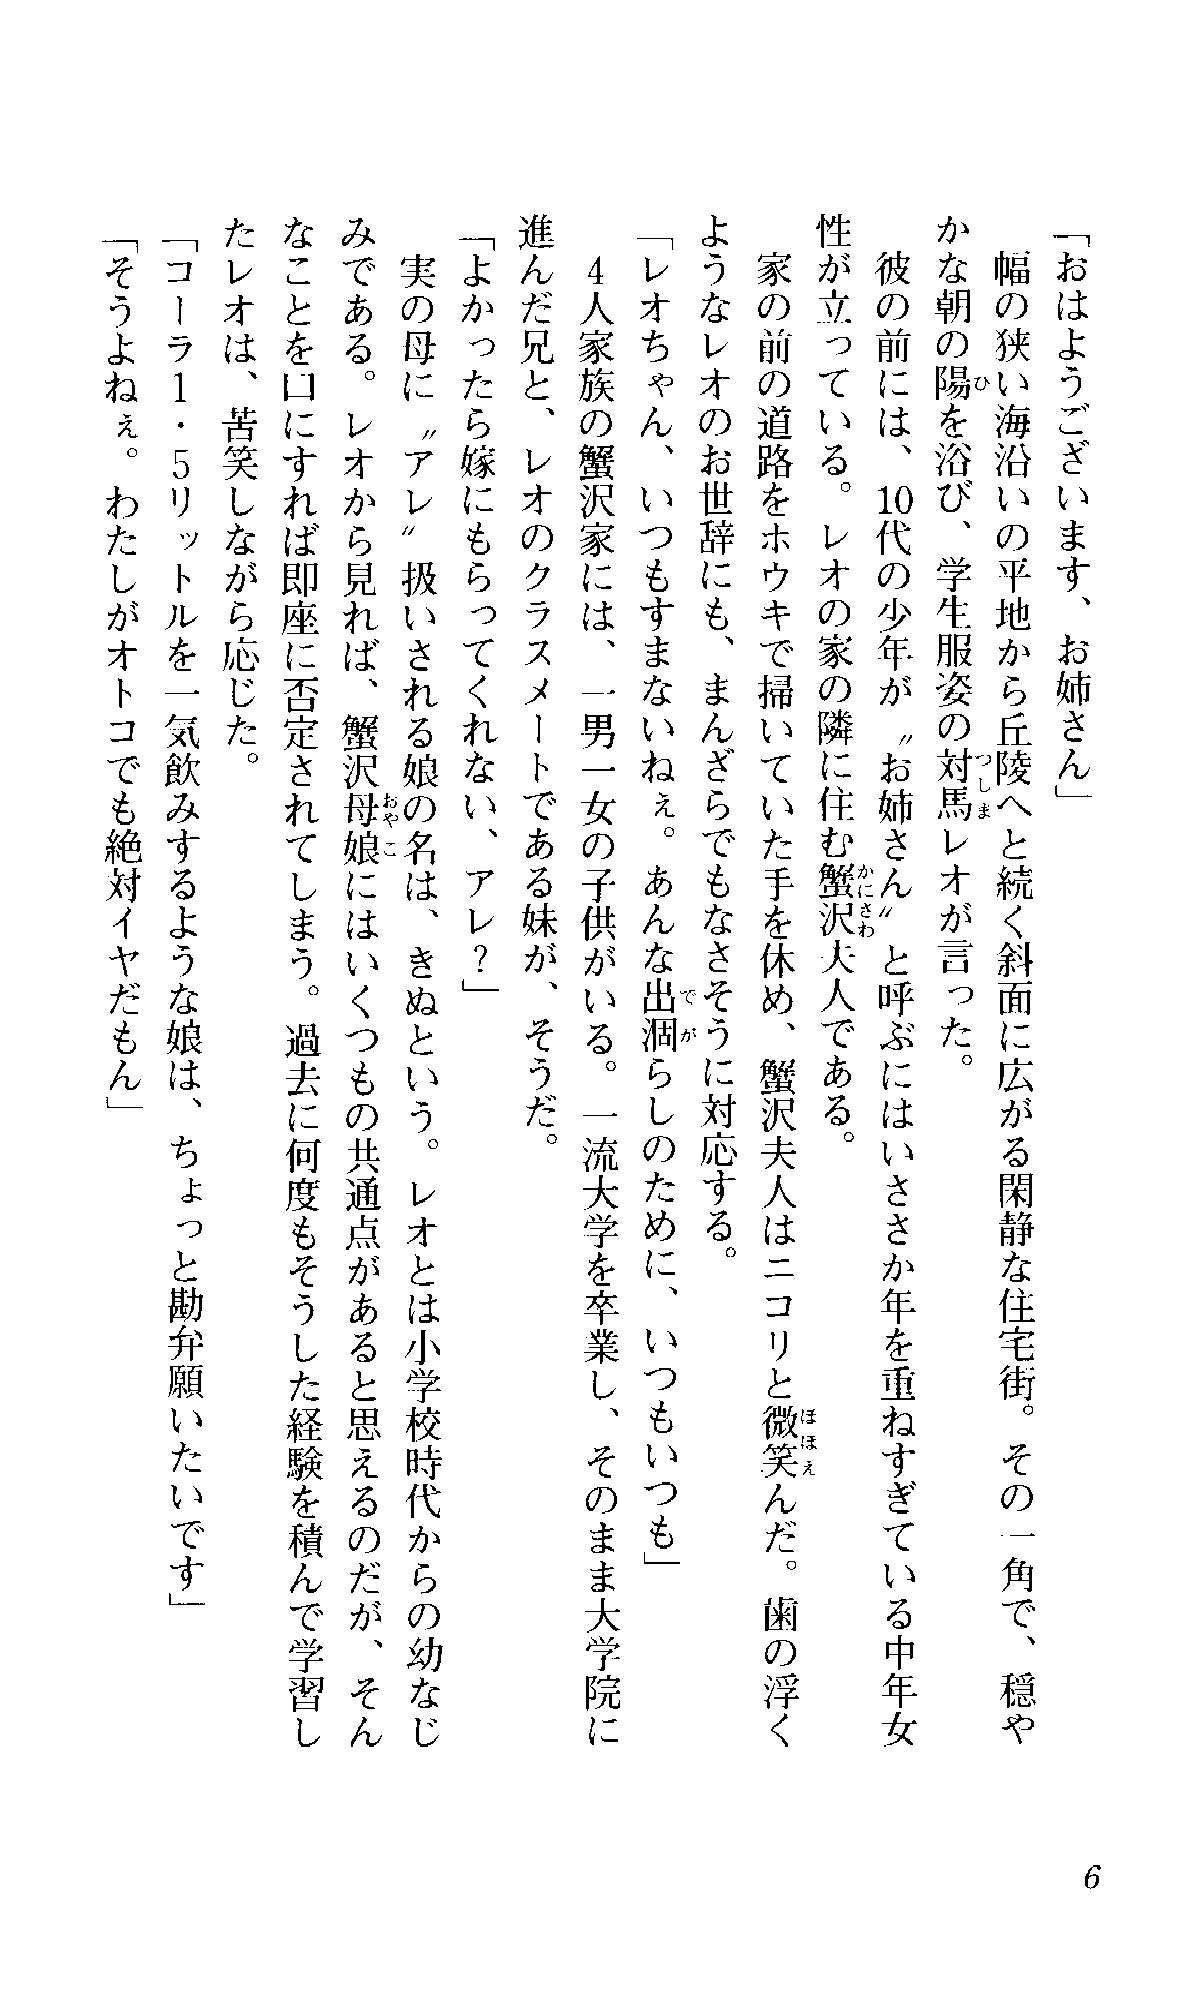 「おはようございます、お姉さん」
　幅の狭い海沿いの平地から丘陵へと続く斜面に広がる閑静な住宅街。その一角で、穏や
かな朝の陽を浴び、学生服姿の対馬レオが言った。
　彼の前には、10代の少年が〝お姉さん〟と呼ぶにはいささか年を重ねすぎている中年女
性が立っている。レオの家の隣に住む蟹沢夫人である。
　家の前の道路をホウキで掃いていた手を休め、蟹沢夫人はニコリと微笑んだ。歯の浮く
ようなレオのお世辞にも、まんざらでもなさそうに対応する。
「レオちゃん、いつもすまないねぇ。あんな出涸らしのために、いつもいつも」
　4人家族の蟹沢家には、一男一女の子供がいる。一流大学を卒業し、そのまま大学院に
進んだ兄と、レオのクラスメートである妹が、そうだ。
「よかったら嫁にもらってくれない、アレ？」
　実の母に〝アレ〟扱いされる娘の名は、きぬという。レオとは小学校時代からの幼なじ
みである。レオから見れば、蟹沢母娘にはいくつもの共通点があると思えるのだが、そん
なことを口にすれば即座に否定されてしまう。過去に何度もそうした経験を積んで学習し
たレオは、苦笑しながら応じた。
「コーラ1・5リットルを一気飲みするような娘は、ちょっと勘弁願いたいです」
「そうよねぇ。わたしがオトコでも絶対イヤだもん」
6